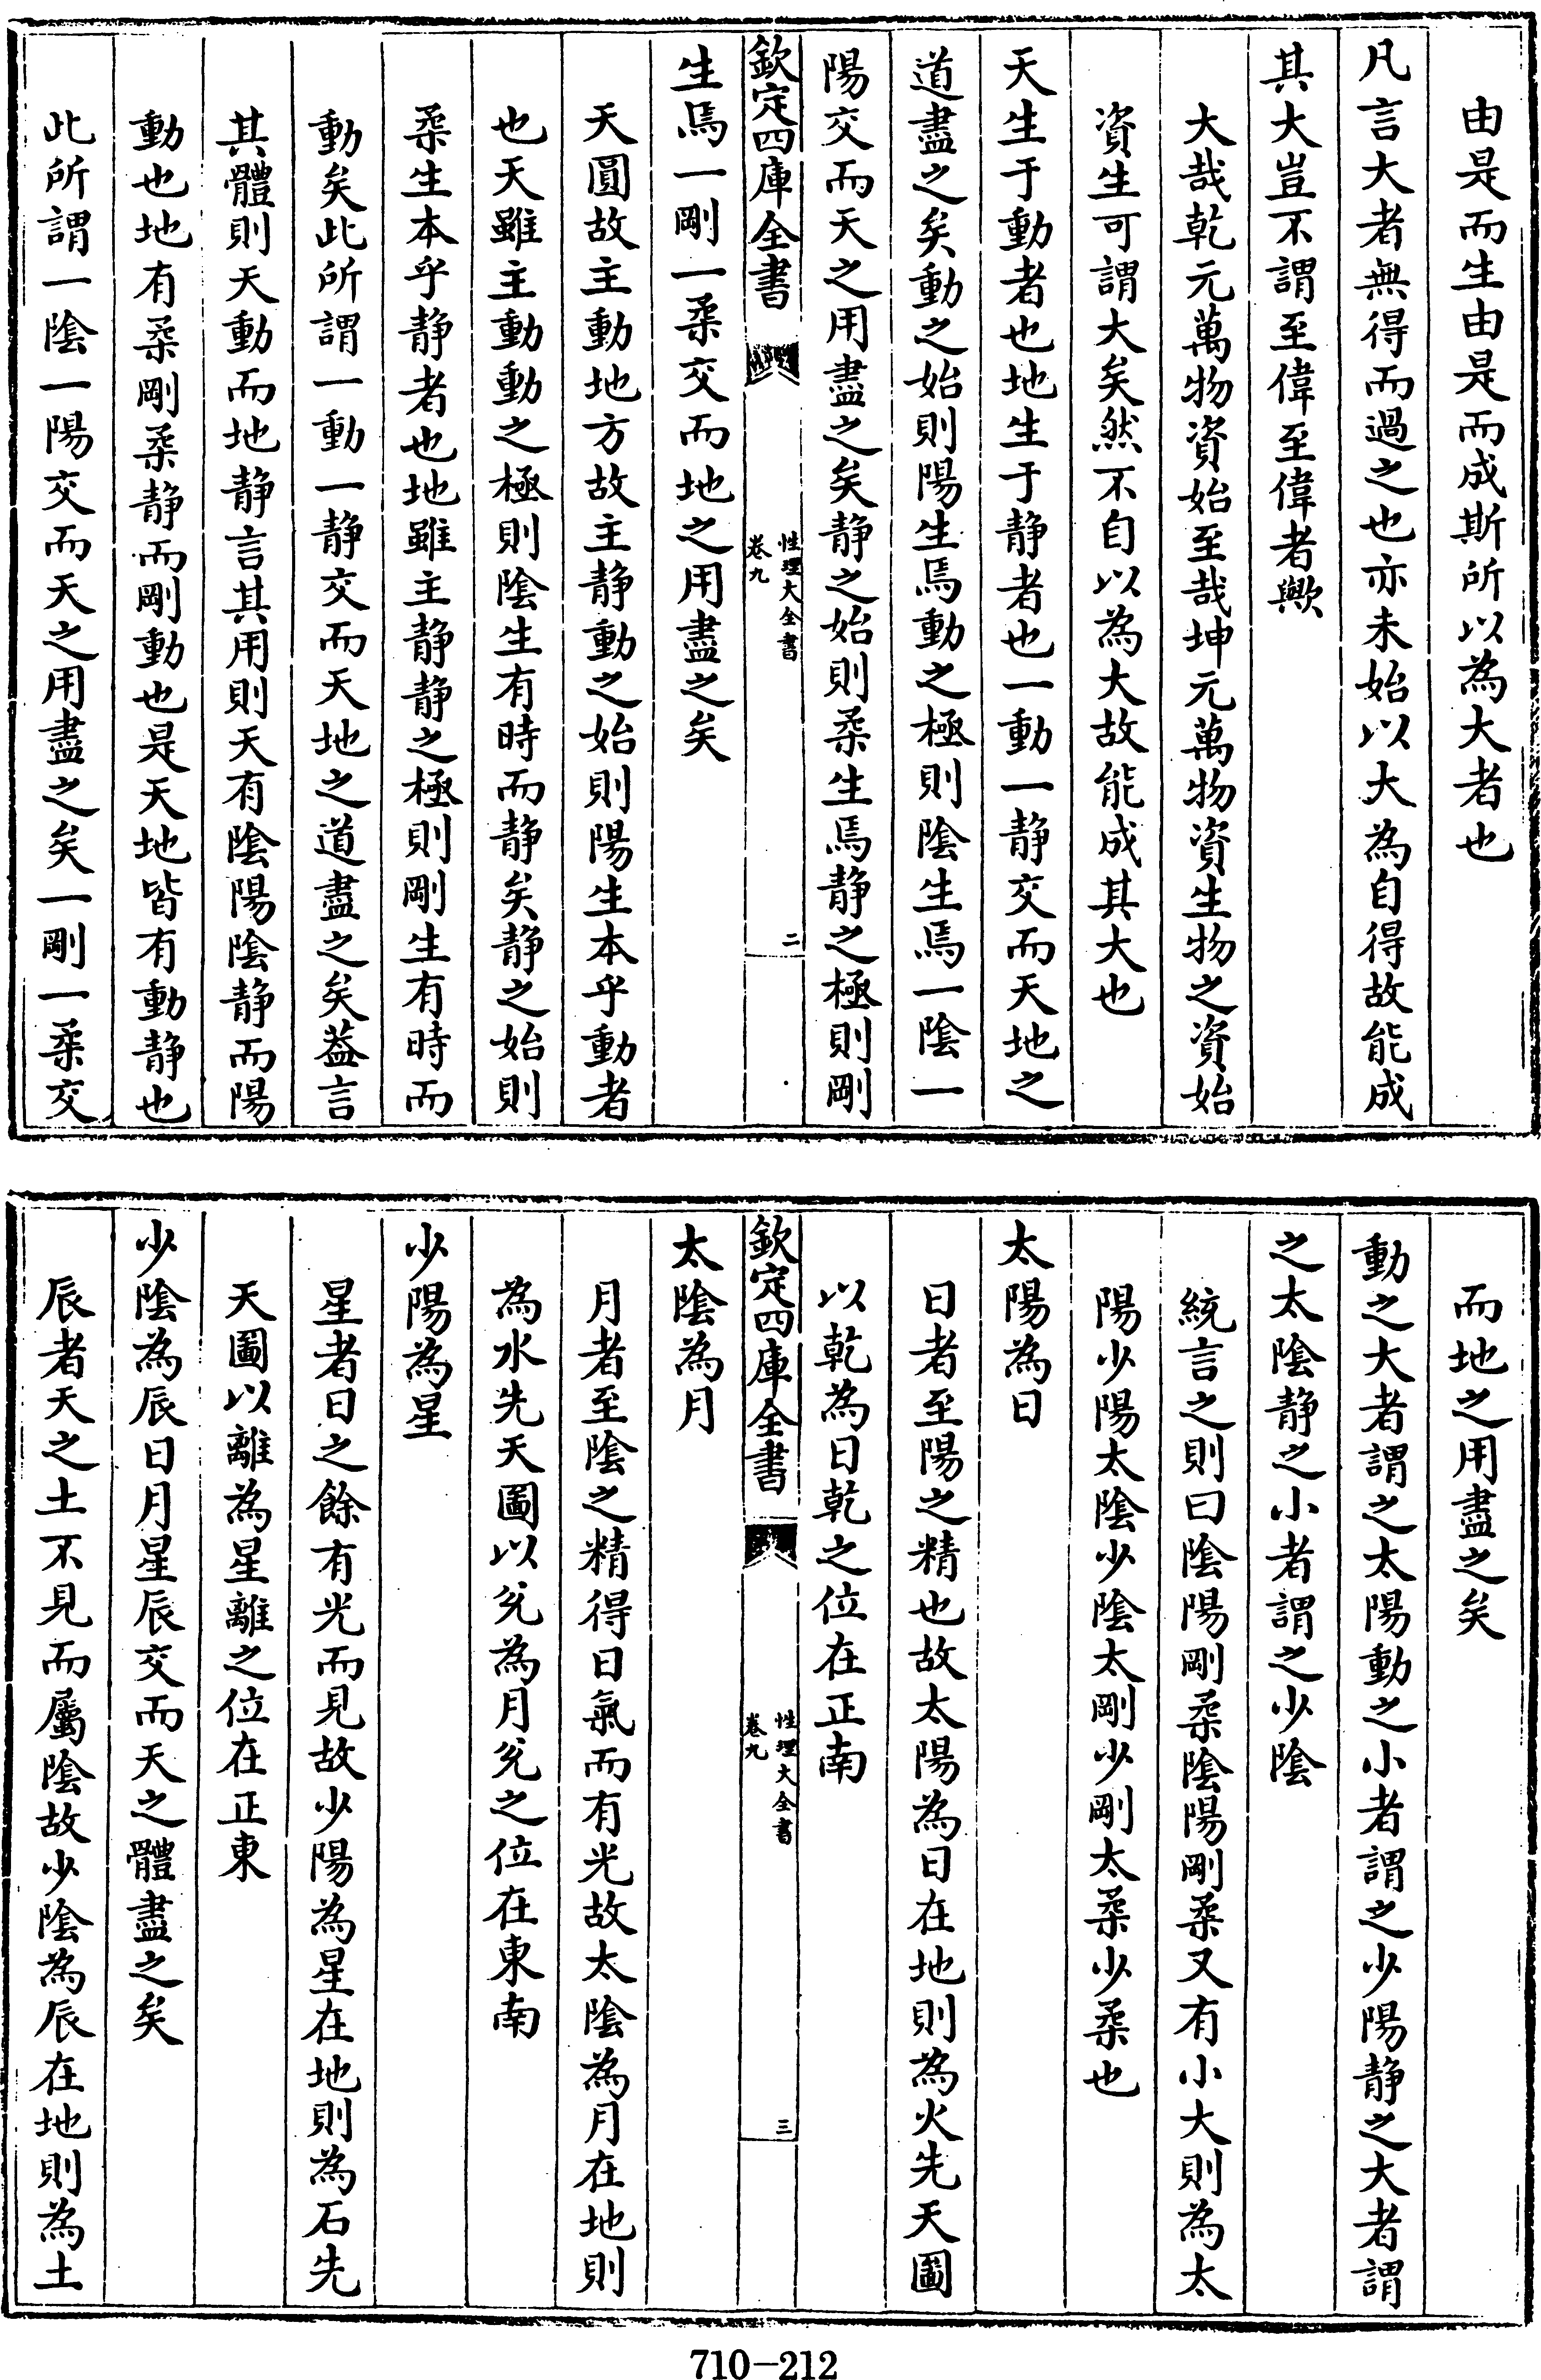 由是而生由是而成斯所以為大者也
凡言大者無得而過之也亦未始以大為自得故能成
其大豈不謂至偉至偉者歟
大哉乾元萬物資始至哉坤元萬物資生物之資始
資生可謂大矣然不自以為大故能成其大也
天生于動者也地生于靜者也一動一靜交而天地之
道盡之矣動之始則陽生焉動之極則陰生焉一陰一
陽交而天之用盡之矣靜之始則柔生焉靜之極則剛
欽定四庫全書
性理大全書
卷九
二
生焉一剛一柔交而地之用盡之矣
天圓故主動地方故主靜動之始則陽生本乎動者
也天雖主動動之極則陰生有時而靜矣靜之始則
柔生本乎靜者也地雖主靜靜之極則剛生有時而
動矣此所謂一動一靜交而天地之道盡之矣葢言
其體則天動而地靜言其用則天有陰陽陰靜而陽
動也地有柔剛柔靜而剛動也是天地皆有動靜也
此所謂一陰一陽交而天之用盡之矣一剛一柔交
而地之用盡之矣
動之大者謂之太陽動之小者謂之少陽靜之大者謂
之太陰靜之小者謂之少陰
統言之則曰陰陽剛柔陰陽剛柔又有小大則為太
陽少陽太陰少陰太剛少剛太柔少柔也
太陽為日
日者至陽之精也故太陽為日在地則為火先天圖
以乾為日乾之位在正南
欽定四庫全書
性理大全書
卷九
三
太陰為月
月者至陰之精得日氣而有光故太陰為月在地則
為水先天圖以兌為月兌之位在東南
少陽為星
星者日之餘有光而見故少陽為星在地則為石先
天圖以離為星離之位在正東
少陰為辰日月星辰交而天之體盡之矣
辰者天之土不見而屬陰故少陰為辰在地則為土
710-212